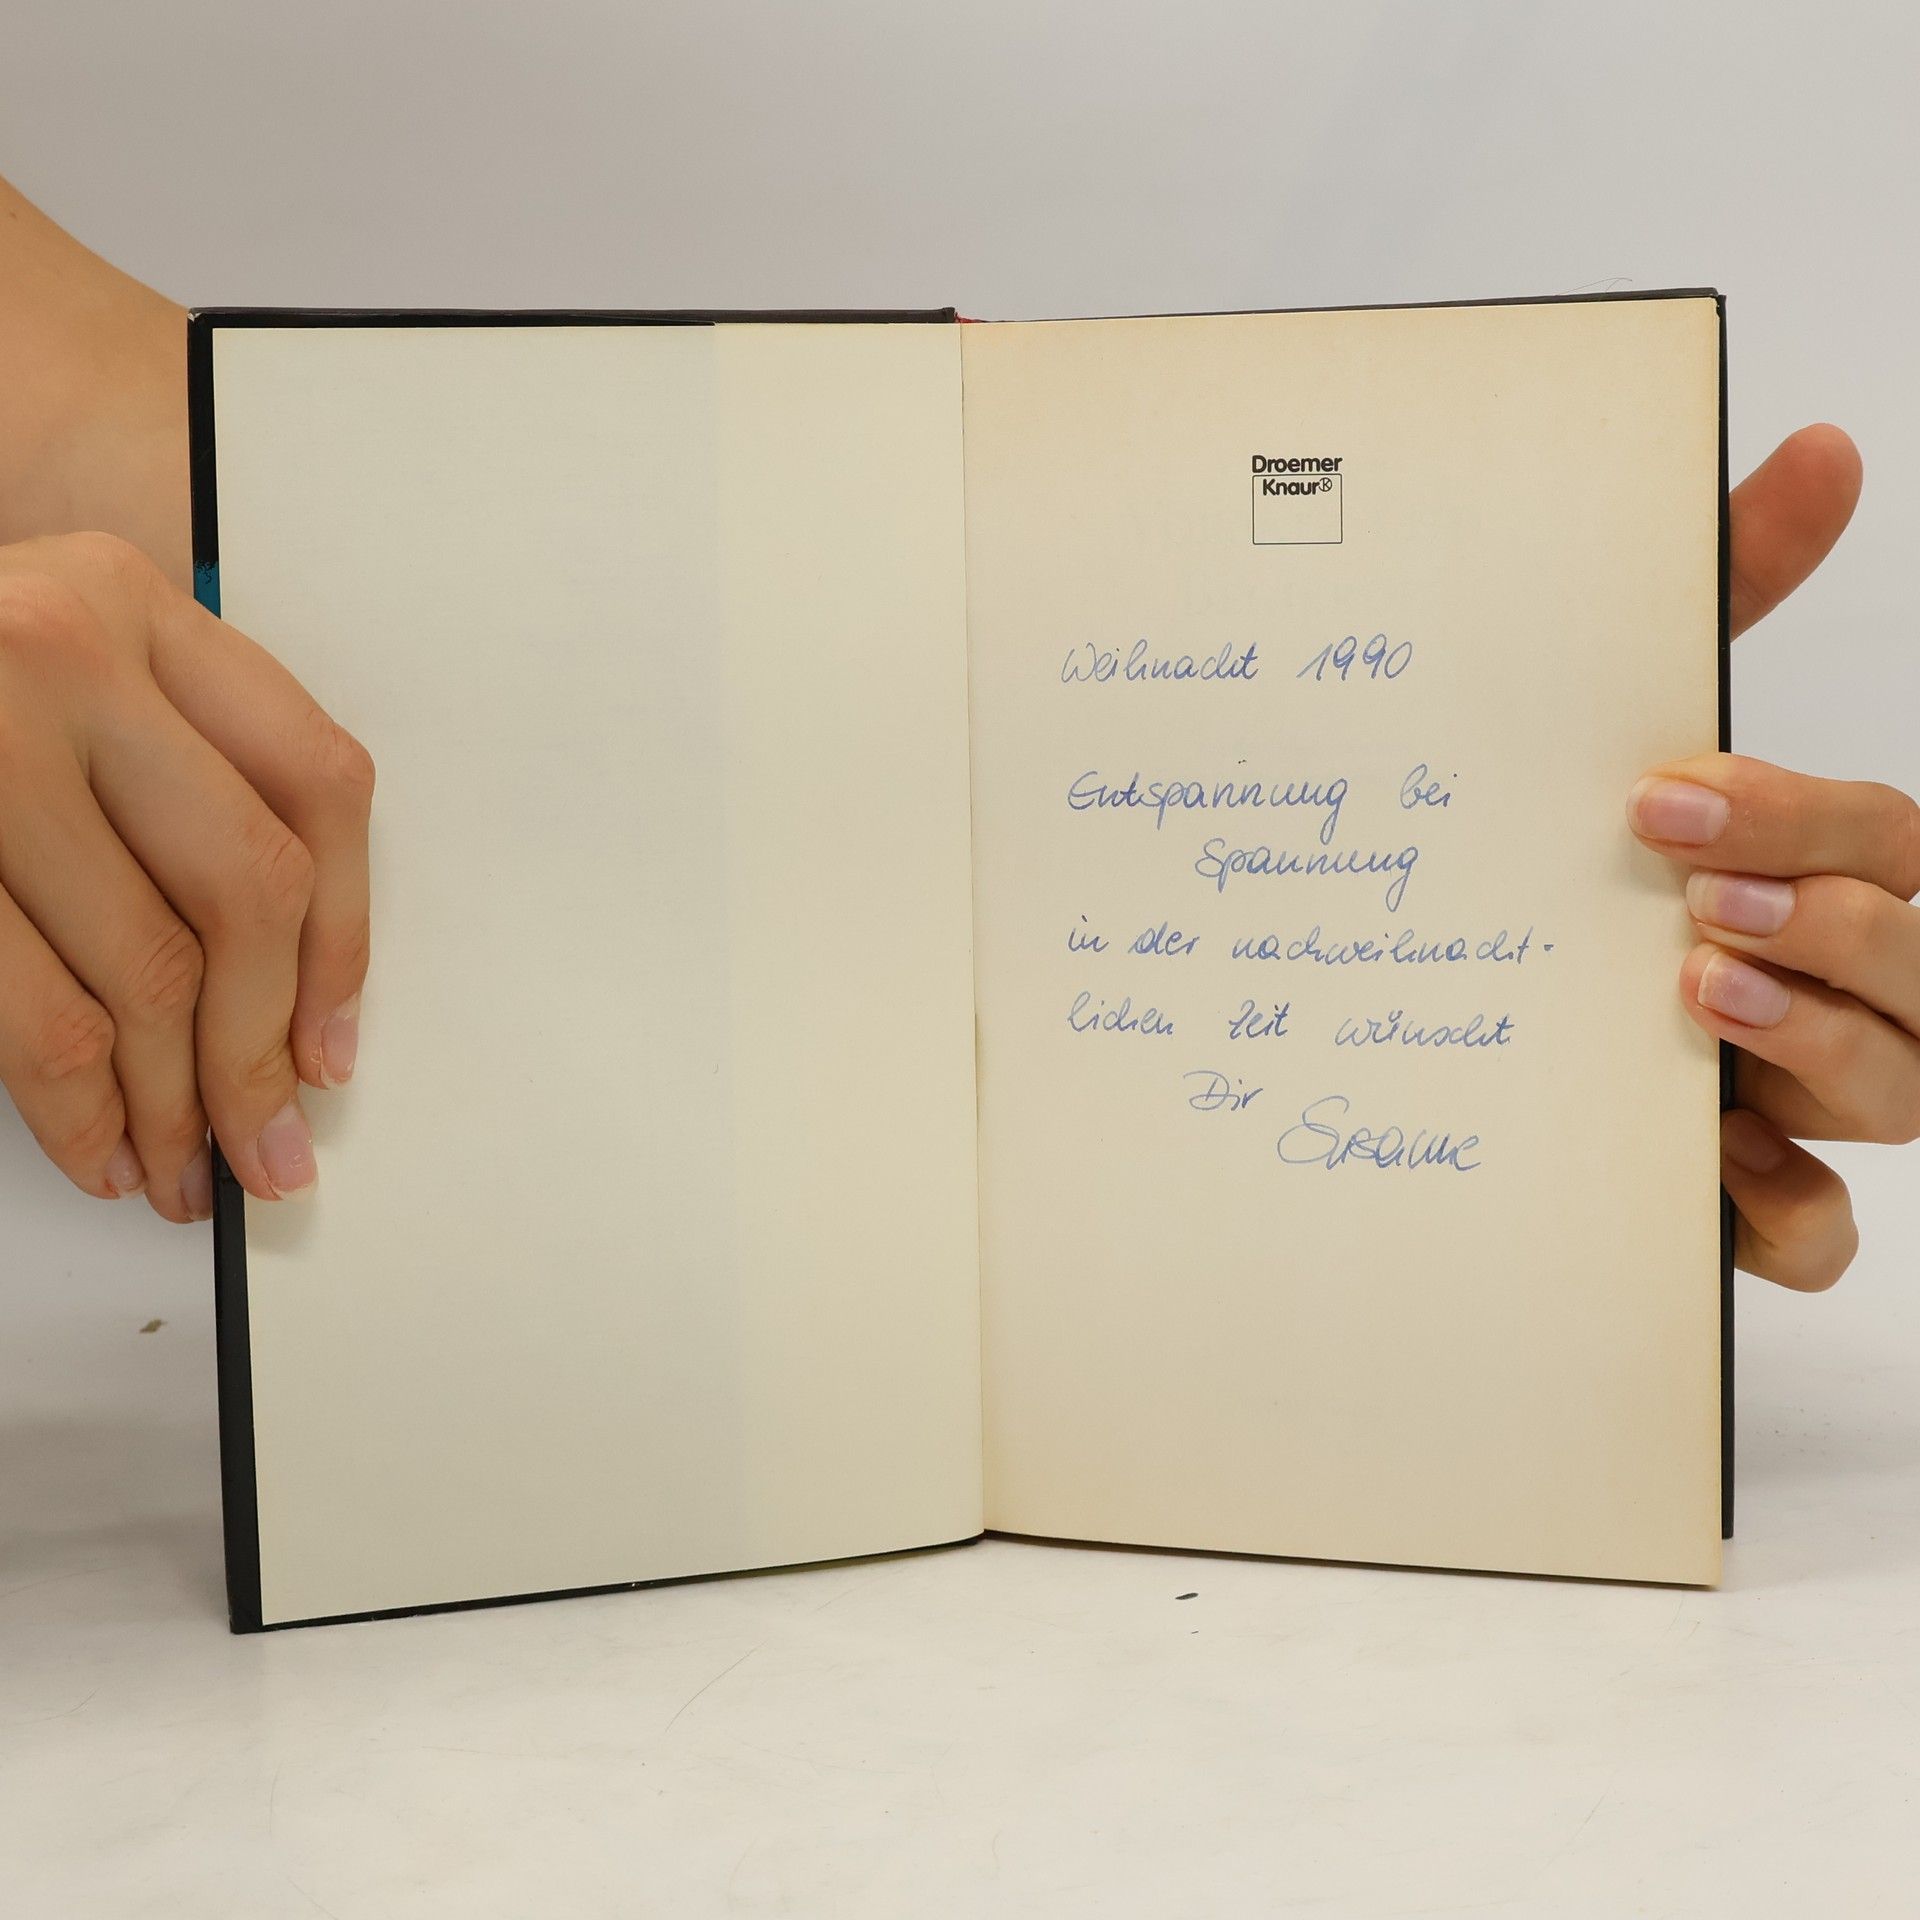 Droemer
Knaur®
Weihnacht 1990
Entspannung bei
Spannung
in der nachweihnacht-
lichen Zeit wünscht
Dir
Susanne